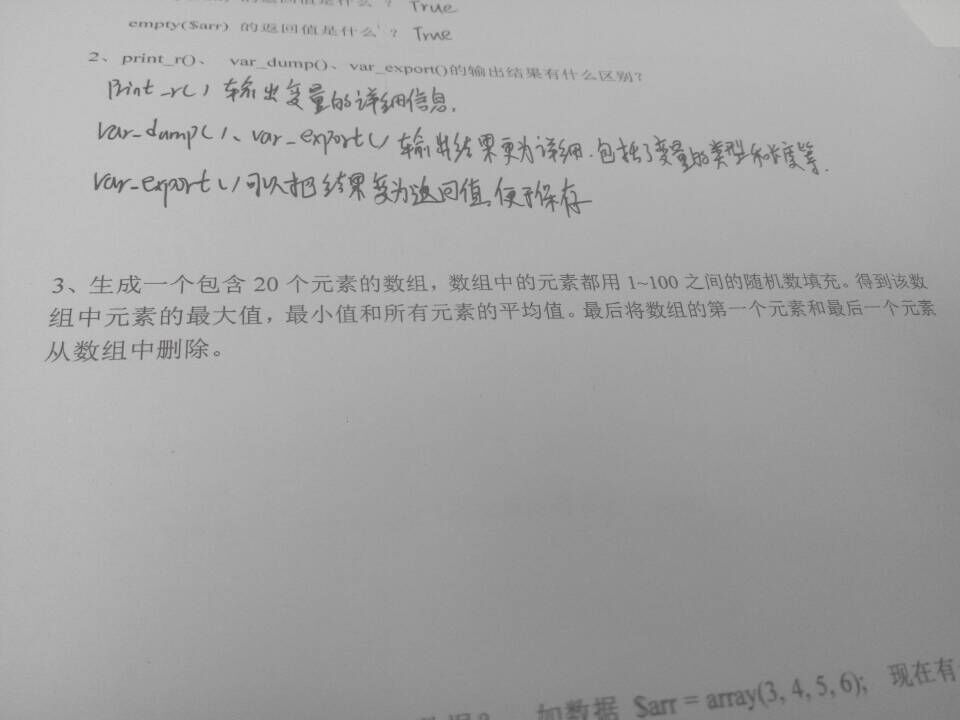 的返回值是什么 ? True
empty($arr) 的返回值是什么 ? True
2、print_r()、 var_dump()、var_export()的输出结果有什么区别?
Print_r() 输出变量的详细信息.
var_dump()、var_export() 输出结果更为详细.包括了变量的类型和长度等.
var_export()可以把结果变为返回值,便于保存
3、生成一个包含 20 个元素的数组，数组中的元素都用 1~100 之间的随机数填充。得到该数
组中元素的最大值，最小值和所有元素的平均值。最后将数组的第一个元素和最后一个元素
从数组中删除。
如数据 $arr = array(3, 4, 5, 6); 现在有